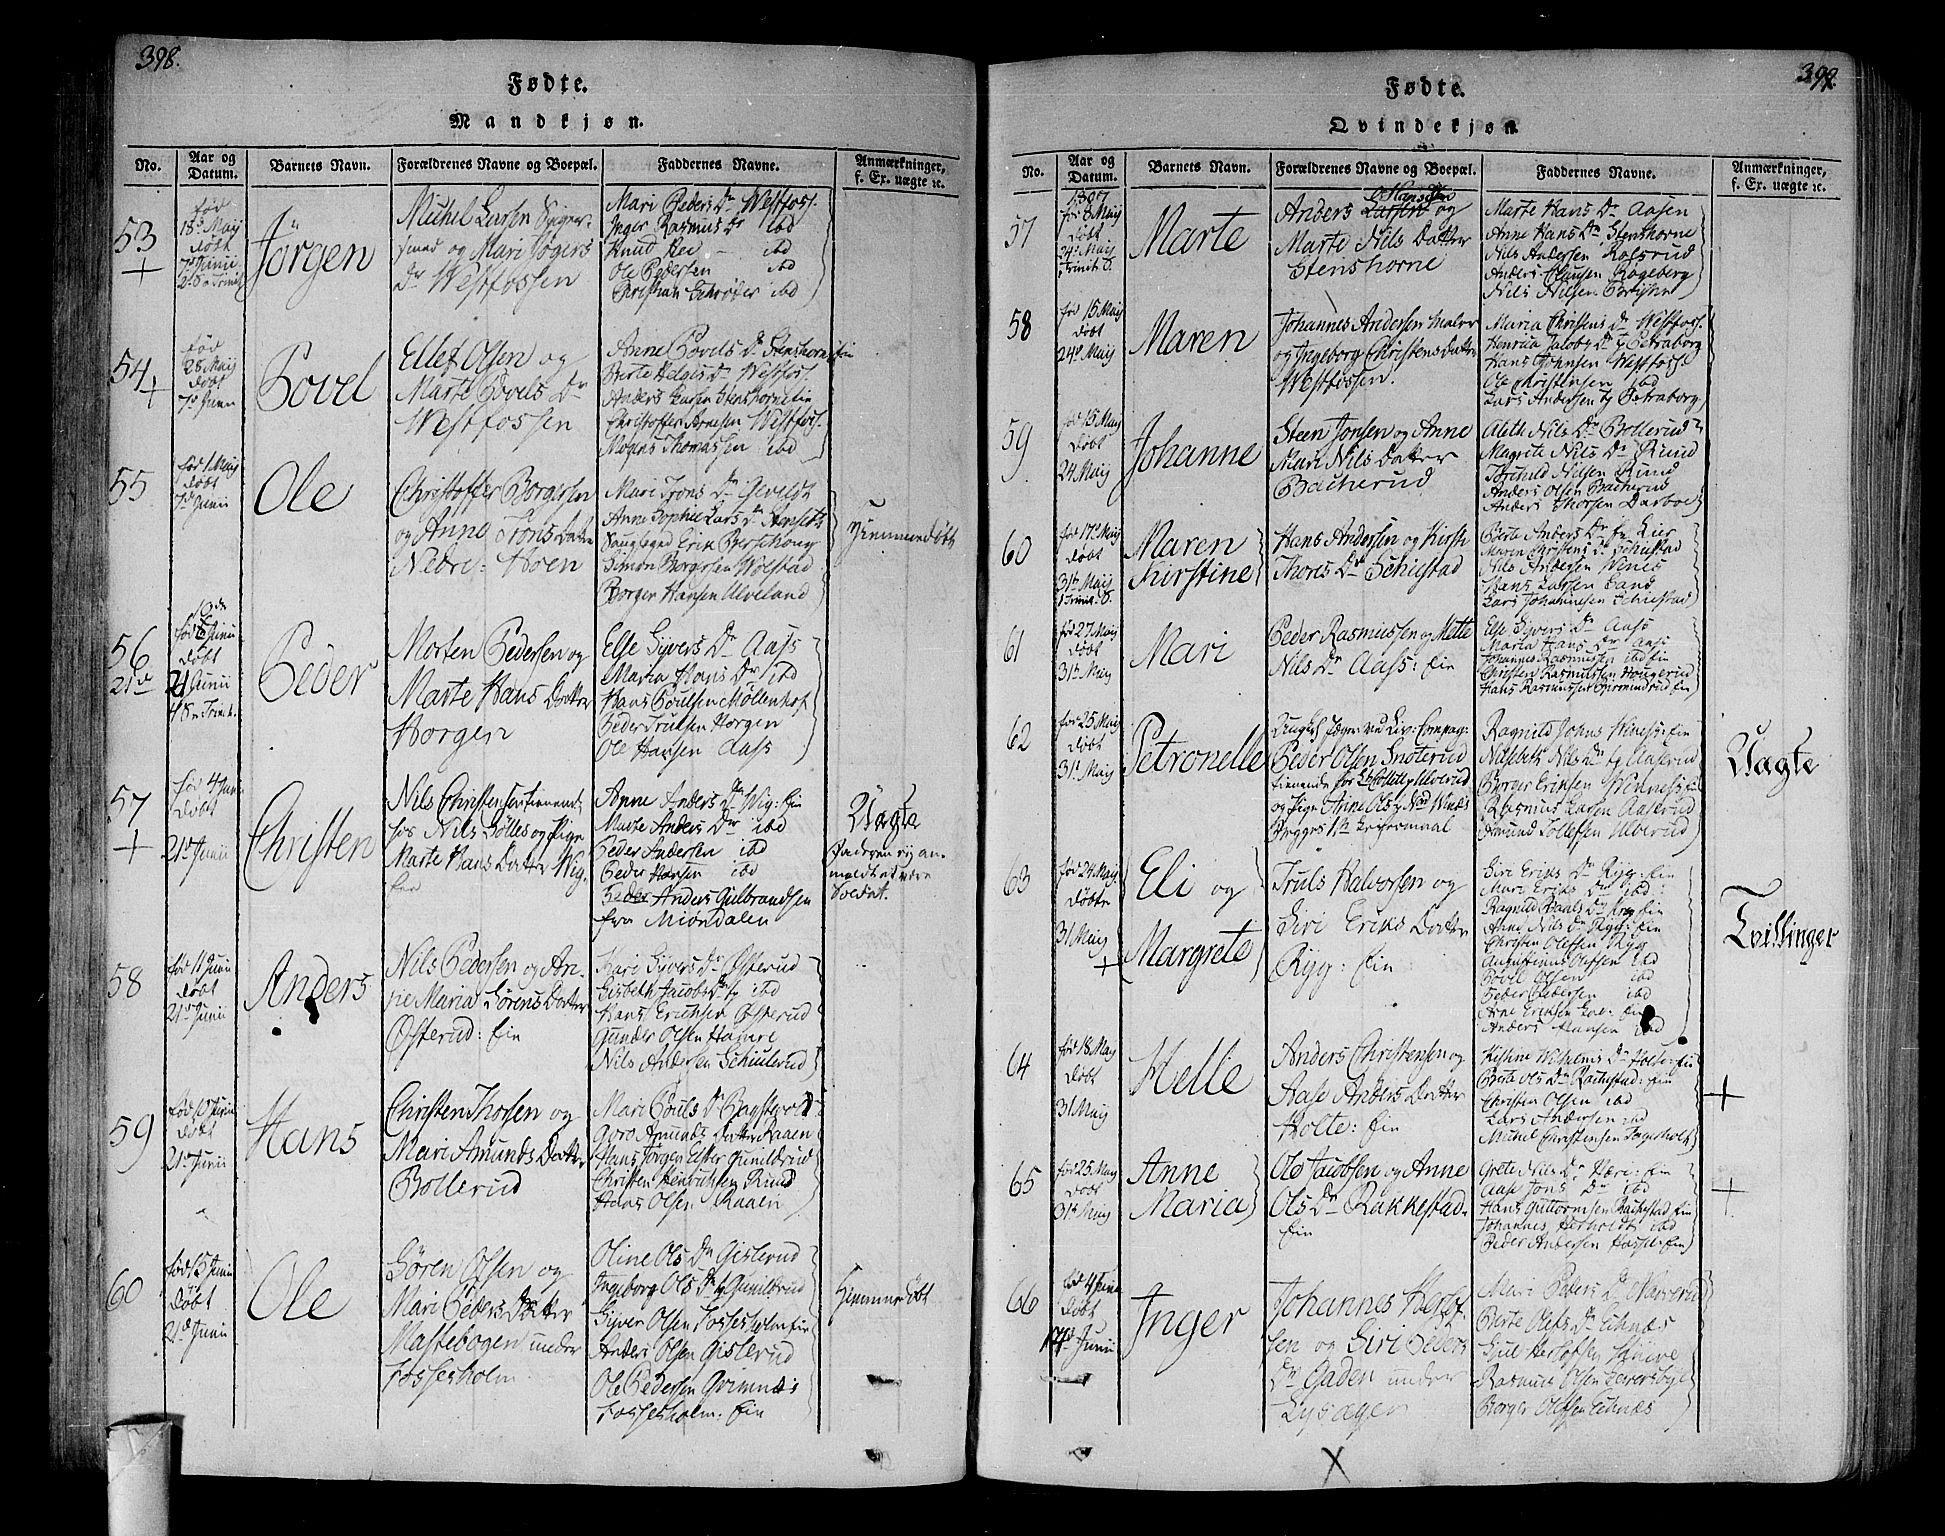 398.
Fødte.
Mandkjøn.
No.
Aar og Datum.
Barnets Navn.
Forældrenes Navne og Boepæl.
Faddernes Navne.
Anmærkninger, f. Ex. uægte ꝛc.
53
+
fød
18de Maij
døbt
7de Junii
Jörgen
Michel Larsen Spiger-
smed og Mari Jögers
Dr Westfossen
Mari Peders Dr Westfoss:
Inger Rasmus Dr ibd
Knud ibd
Ole Pedersen ibd
Christian Schrøder ibd
54
+
fød
28 Maij
døbt
7de Junii
Povel
Ellef Olsen og
Marte Povels Dr
Westfossen
Anne Povels Dr Stenshorne fin
Berte Helges Dr Westfoss:
Anders Larsen Stenshorne fin
Christoffer Arnesen Westfoss:
Mogens Thomassen ibd
55
fød 1 Maij
døbt
7de Junii
Ole
Christoffer Borgersen
og Anne Trons Datter
Nedre: Hoen
Mari Trons Dr
Anne Sophie Lars Dr
Erik
Simon Borgersen Wolstad
Borger Hansen Ulveland
Hjemmedøbt
56
fød Junii
døbt
21de Junii
Peder
Morten Pedersen og
Marte Hans Datter
Horgen
Else Syvers Dr Aass
Maria Hans Dr ibd
Hans Poulsen Møllenhof
Peder Trulsen Horgen
Ole Hansen Aass
57
+
fød 4 Jun:
døbt
21de Junii
Christen
Nils Christensen tienende
hos Nils Sölles og Pige
Marte Hans Datter Wig:
fin
Anne Anders Dr Wig: fin
Marte Anders Dr ibd
Peder Andersen ibd
Peder Hansen ibd
Peder Anders Gulbrandsen
fra Miøndalen
Uægte
Faderen ej an-
meldt at være
Soldat.
58
fød 11 Junii
døbt
21de Junii
Anders
Nils Pedersen og An-
ne Maria Sörens Datter
Østerud: fin
Kari Syvers Dr Østerud
Lisbeth Jacobs Dr ibd
Hans Erichsen Østerud
Gunder Olsen Hamre
Nils Andersen Schiulerud
59
fød Junii
døbt
21de Junii
Hans
Christen Thorsen og
Mari Amunds Datter
Bollerud
Mari Pouls Dr
Goro Amunds Datter Raaen
Hans Jörgen Gunildrud
Christen Henrichsen Ruud
Hans Olsen Raaen
60
fød 15 Junii
døbt
21de Junii
Ole
Sören Olsen og
Mari Peders Datter
Mastebogen under
Fossesholm
Oline Ols Dr Gislerud
Ingeborg Ols Dr Gunildrud
Syver Olsen Fossesholm fin
Anders Olsen Gislerud
Ole Pedersen Grimnæs
Fossesholm: fin
Hjemmedøbt
399.
Fødte.
Qvindekjøn.
No.
Aar og Datum.
Barnets Navn.
Forældrenes Navne og Boepæl.
Faddernes Navne.
Anmærkninger, f. Ex. uægte ꝛc.
57
1807
fød 8 Maij
døbt
24de Maij
Trinit: S.
Marte
Anders Larsen og
Marte Nils Datter
Stenshorne
Marte Hans Dr Aasen
Anne Hans Dr Stenshorne
Nils Andersen Kolsrud
Anders Clausen Røgeberg
Nils Nilsen
58
fød 15 Maij
døbt
24de Maij
Maren
Johannes Andersen Maler
og Ingeborg Christens Datter
Westfossen.
Maria Christens Dr Westfoss:
Henrica Jacobs Dr Petraborg
Hans Johnsen Westfoss:
Ole Christensen ibd
Lars Andersen Petraborg
59
fød 15 Maij
døbt
24 Maij
Johanne
Steen Jonsen og Anne
Mari Nils Datter
Bacherud
Aleth Nils Dr Bollerud
Magrete Nils Dr Ruud
Torchild Nilsen Ruud
Anders Olsen Bacherud
Anders Thorsen Darboe
60
fød 17de Maij
døbt
31te Maij
1 Trinit: S.
Maren
Kirstine
Hans Andersen og Kirsti
Thores Dr Schiestad
Berte Anders Dr fra Lier
Maren Christens Dr Schiestad
Nils Andersen Wenes
Hans Larsen Sand
Lars Johannesen Schiestad
61
fød 27 Maij
døbt
31te Maij
Mari
Peder Rasmussen og Mette
Nils Dr Aass: fin
Else Syvers Dr Aass
Maria Hans Dr Aass
Johannes Rasmussen ibd fin
Christen Rasmussen Hougerud
Hans Rasmussen Gurmundrud fin
62
fød 25 Maij
døbt
31te Maij
Petronelle
Ungkl: Jæger ved Liv: Compag:
Peder Olsen Snoterud
tienende for Ulverud
og Pige Anne Ols Dr Winæs
Brygges 1te Leiermaal
Ragnild Johns Winess: fin
Nilsebeth Nils Dr Aaserud
Borger Eriksen Winness: fin
Rasmus Larsen Aaserud
Amund Tollefsen Ulverud
Uægte
63
fød 24 Maij
døbte
31 Maij
+
Eli og
Margrete
Truls Halvorsen og
Siri Eriks Datter
Ryg: fin
Siri Eriks Dr Ryg: fin
Mari Eriks Dr ibd:
Ragnild Paals Dr Kreg fin
Anne Nils Dr Ryg: fin
Christen Olefsen Ryg
Augustinus Olefsen ibd
Povel Olsen ibd
Peder Pedersen ibd
Arne Eriksen Loe: fin
Anders Hansen ibd
Tvillinger
64
fød 18 Maij
døbt
31 Maij
Helle
Anders Christensen og
Aase Anders Datter
Holte: fin
Kistine Wilhelms Dr Holte: fin
Berte Ols Dr Rachestad: fin
Christen Olsen ibd
Lars Andersen ibd
Michel Christensen Tagesholt
+
65
fød 25 Maij
døbt
31te Maij
Anne
Maria
Ole Jacobsen og Anne
Ols Dr Rakkestad
fin
Grete Nils Dr Være: fin
Aase Jons Dr ibd
Hans Guttormsen Rachestad fin
Johannes ibd
Peder Andersen Hassel: fin
+
66
fød 4 Junii
døbt
14de Junii
Inger
Johannes Herlof-
sen og Siri Peders
Dr Gaden under
Lysager
Mari Peders Dr Narverud
Berte Olefs Dr Eknæs
Gjul Herlofsen
Rasmus Olsen
Borger Olefsen Eknæs
X